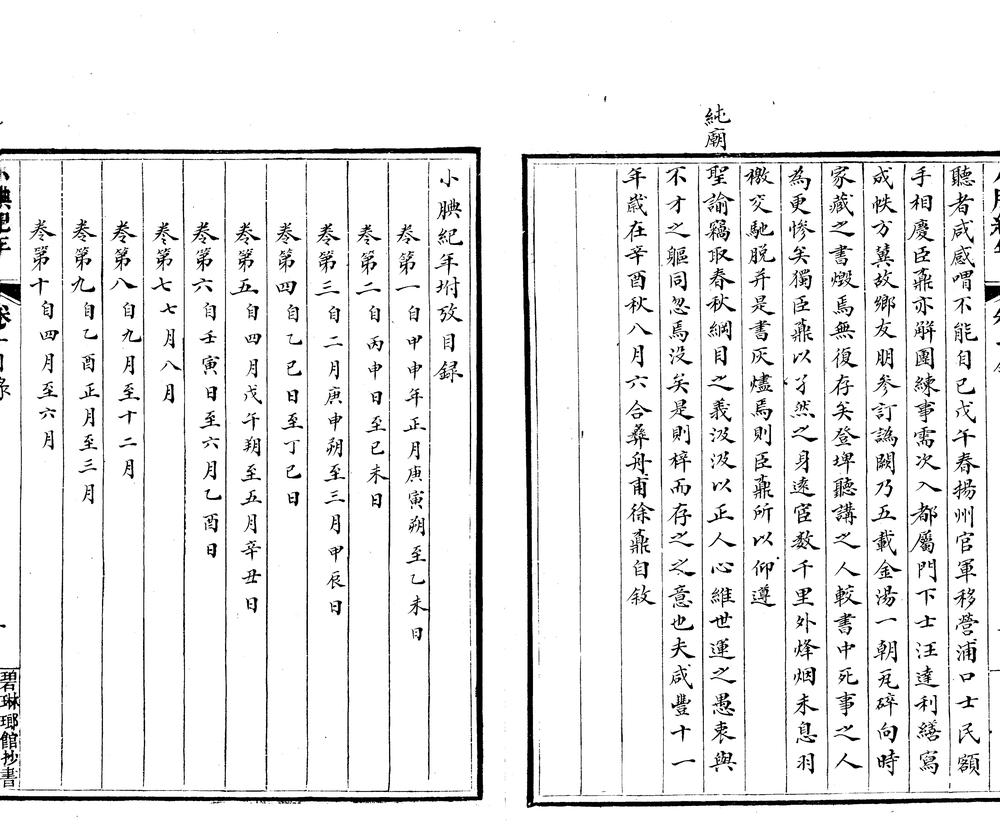 聽者咸感喟不能自已戊午春揚州官軍移營浦口士民額
手相慶臣鼒亦解團練事需次入都屬門下士汪達利繕寫
成帙方冀故鄉友朋參訂譌闕乃五載金湯一朝瓦碎向時
家藏之書燬焉無復存矣登埤聽講之人較書中死事之人
為更慘矣獨臣鼒以孑然之身遠宦數千里外烽烟未息羽
檄交馳脫并是書灰燼焉則臣鼒所以仰遵
純廟
聖諭竊取春秋綱目之義汲汲以正人心維世運之愚衷與
不才之軀同忽焉沒矣是則梓而存之之意也夫咸豐十一
年歲在辛酉秋八月六合彝舟甫徐鼒自敘
小腆紀年坿攷目錄
卷第一 自甲申年正月庚寅朔至乙未日
卷第二 自丙申日至己未日
卷第三 自二月庚申朔至三月甲辰日
卷第四 自乙巳日至丁巳日
卷第五 自四月戊午朔至五月辛丑日
卷第六 自壬寅日至六月乙酉日
卷第七 七月八月
卷第八 自九月至十二月
卷第九 自乙酉正月至三月
卷第十 自四月至六月
碧琳瑯館抄書